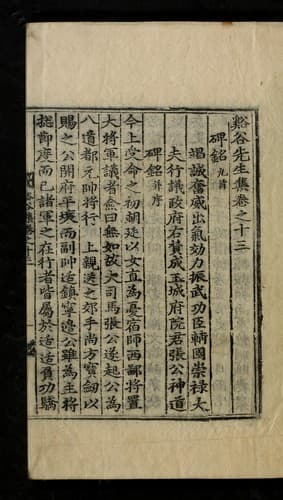 谿谷先生集卷之十三
碑銘 九首
竭誠奮威出氣效力振武功臣輔國崇祿大
夫行議政府右贊成玉城府院君張公神道
碑銘 幷序
今上受命之初朝廷以女直為憂宿師西鄙將置
大將軍議者僉曰無如故大司馬張公遂起公為
八道都元帥將行 上親送之郊手尚方寶劒以
賜之公開府平壤而副帥适鎮寧邊公雖為主將
揔節度而已諸軍之在行者皆屬於适适負功驕